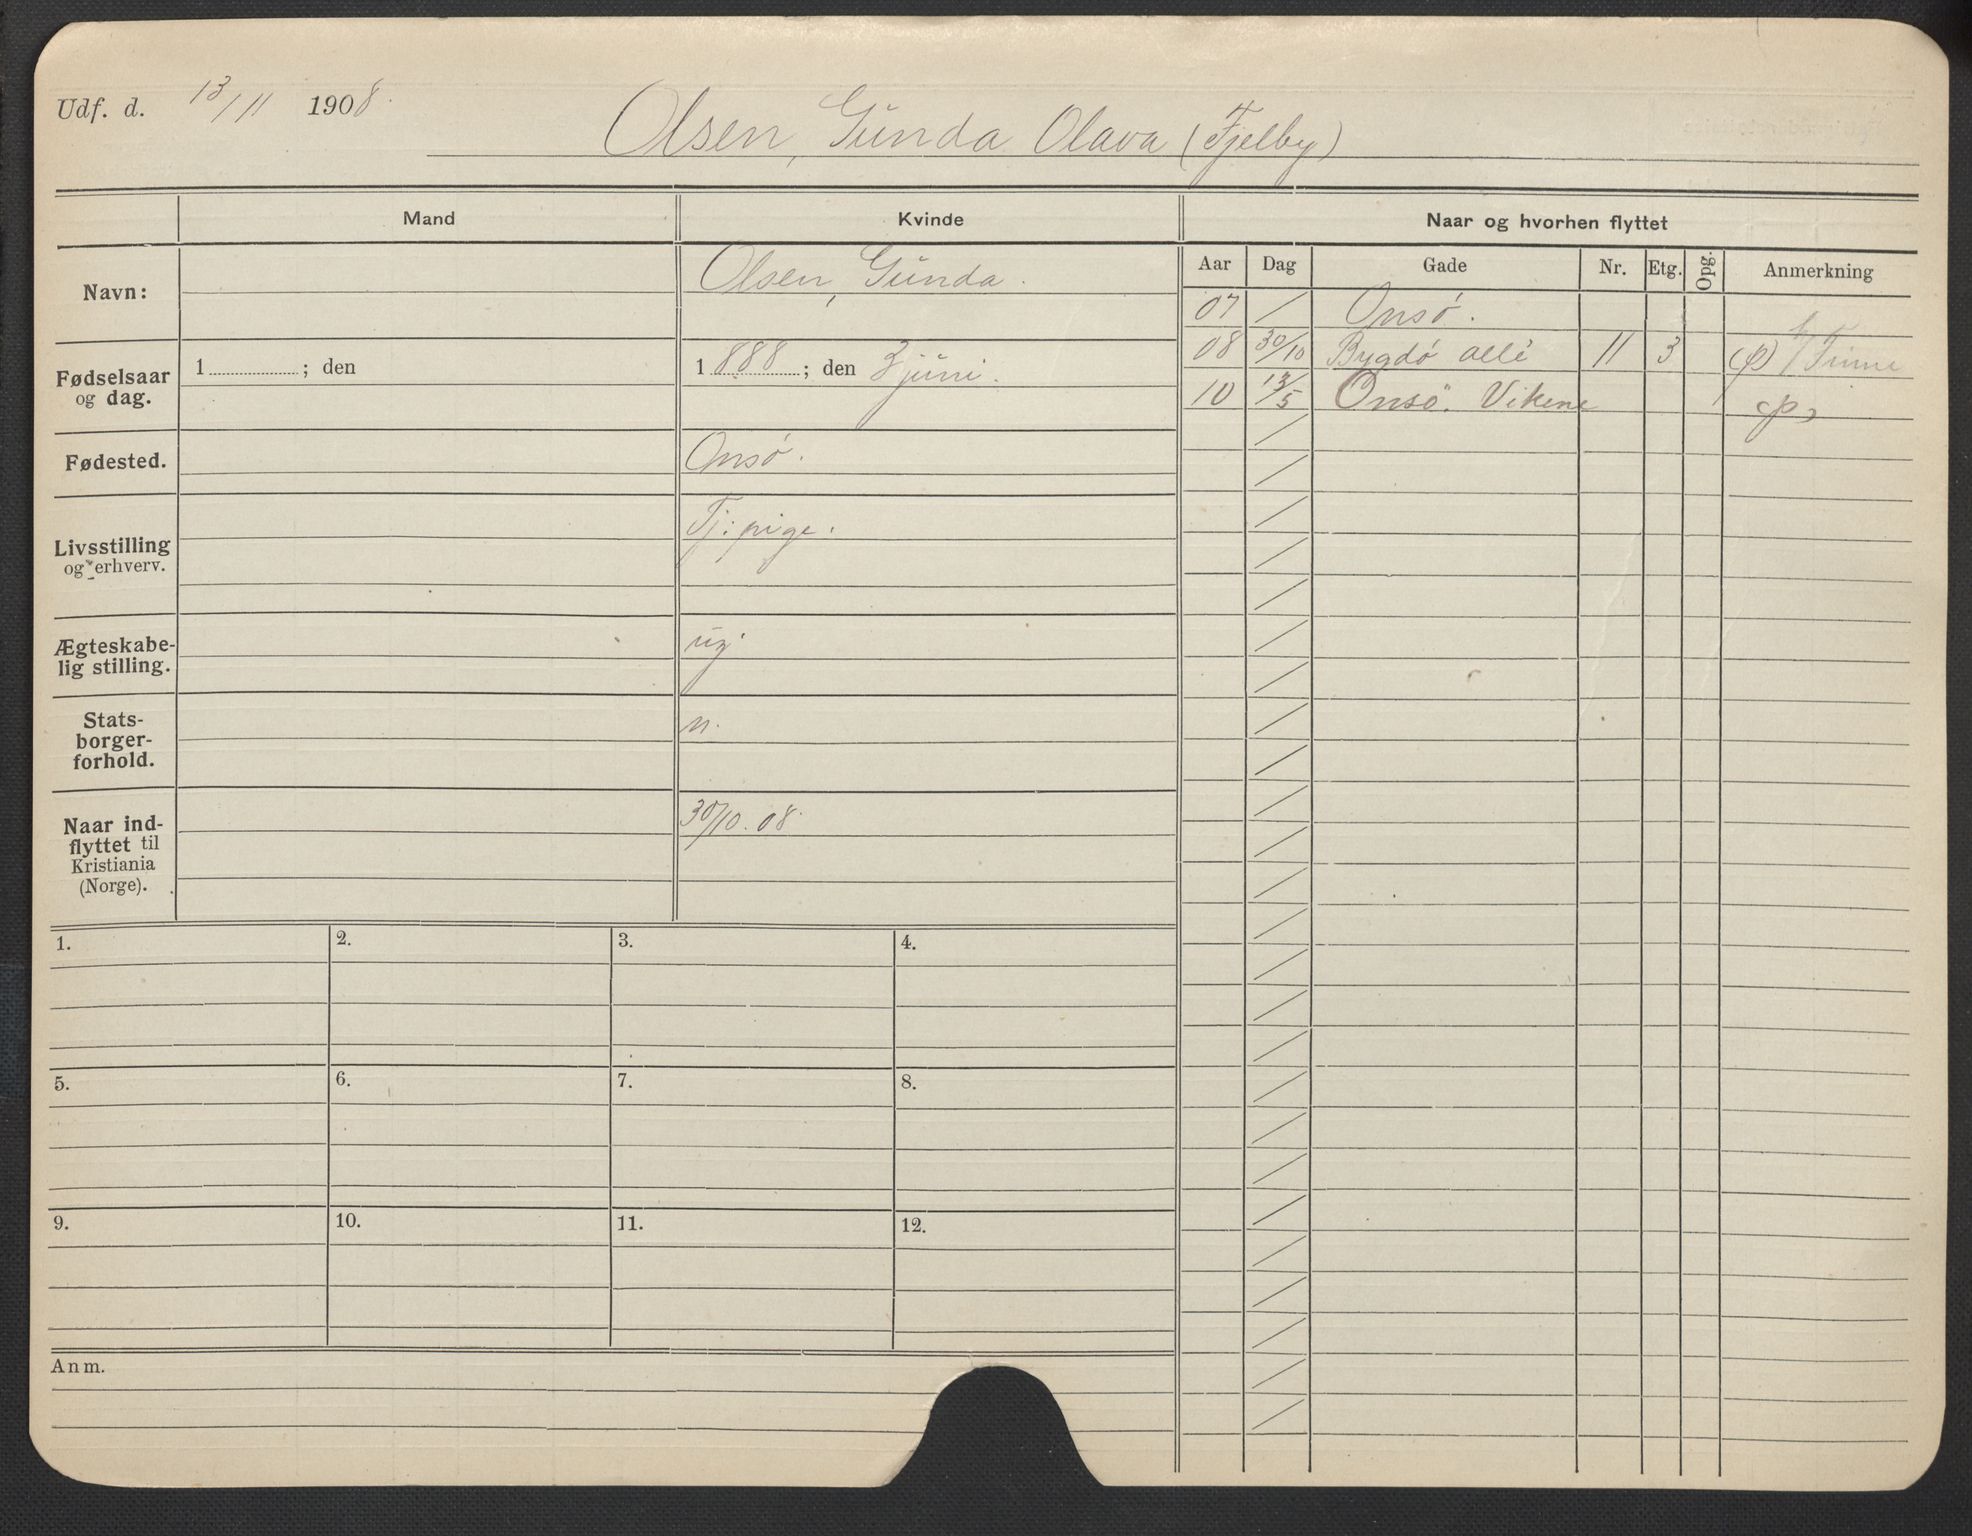 Udf. d. 13/11 1908.
Olsen, Gunda Olava (Fjelby)
Mand Kvinde Naar og hvorhen flyttet
Aar Dag Gade Nr. Etg. Opg. Anmerkning
Navn: Olsen, Gunda.
07 / Onsø.
08 30/10 Bygdø allé 11 3 (p)
10 13/5 Onsø. Vikene
Fødselsaar
og dag.
1 ; den
1888; den 3 juni.
Fødested. Onsø.
Livsstilling
og erhverv.
Tj: pige.
Ægteskabe-
lig stilling.
ug.
Stats-
borger-
forhold.
n.
Naar ind-
flyttet til
Kristiania
(Norge).
30/10. 08.
1. 2. 3. 4.
5. 6. 7. 8.
9. 10. 11. 12.
Anm.